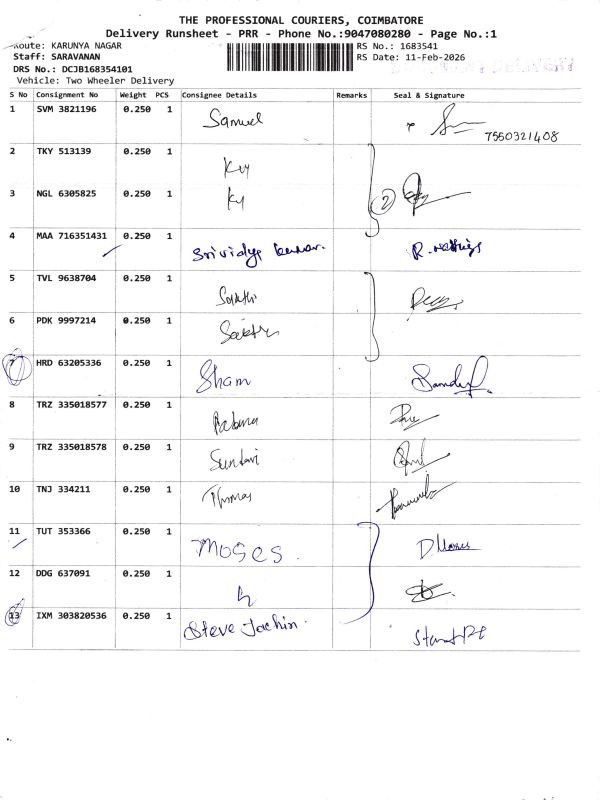 THE PROFESSIONAL COURIERS, COIMBATORE
Delivery Runsheet - PRR - Phone No.:9047080280 - Page No.:1
Route: KARUNYA NAGAR
RS No.: 1683541
Staff: SARAVANAN
RS Date: 11-Feb-2026
DRS No.: DCJB168354101
Vehicle: Two Wheeler Delivery
S No Consignment No Weight PCS Consignee Details Remarks Seal & Signature
1 SVM 3821196 0.250 1 Samuel
7550321408
2 TKY 513139 0.250 1
3 NGL 6305825 0.250 1 Ky 2
4 MAA 716351431 0.250 1 Srividya kumar.
5 TVL 9638704 0.250 1 Sakthi
6 PDK 9997214 0.250 1 Sakthi
7 HRD 63205336 0.250 1 Sham
8 TRZ 335018577 0.250 1
9 TRZ 335018578 0.250 1 Sundari
10 TNJ 334211 0.250 1 Thomas
11 TUT 353366 0.250 1 Moses. D. Moses
12 DDG 637091 0.250 1
13 IXM 303820536 0.250 1 Steve Jachin.